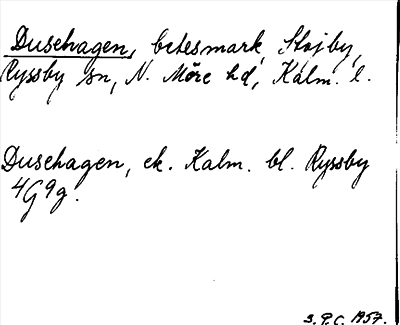 Dusehagen, betesmark, Slojby,
Ryssby sn, N. Möre hd, Kalm. l.
Dusehagen, ek. Kalm. bl. Ryssby
4G9g.
S.P.C. 1957.